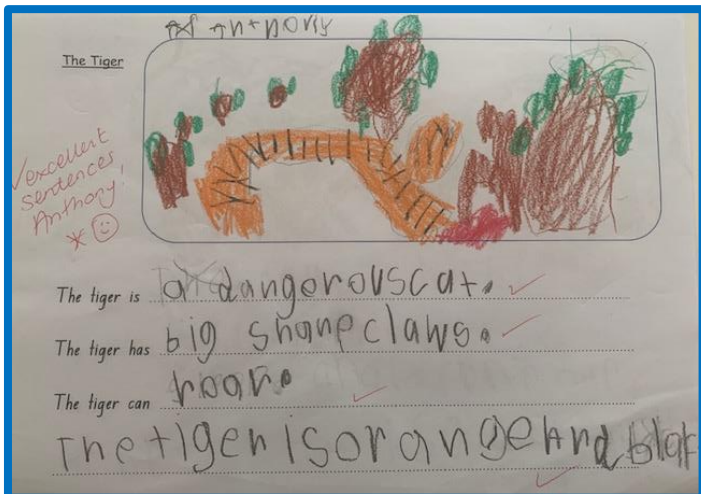 Anthony
The Tiger
excellent
sentences
Anthony!
The tiger is a dangerous cat.
The tiger has big sharp claws.
The tiger can roar.
The tiger is orange And blak